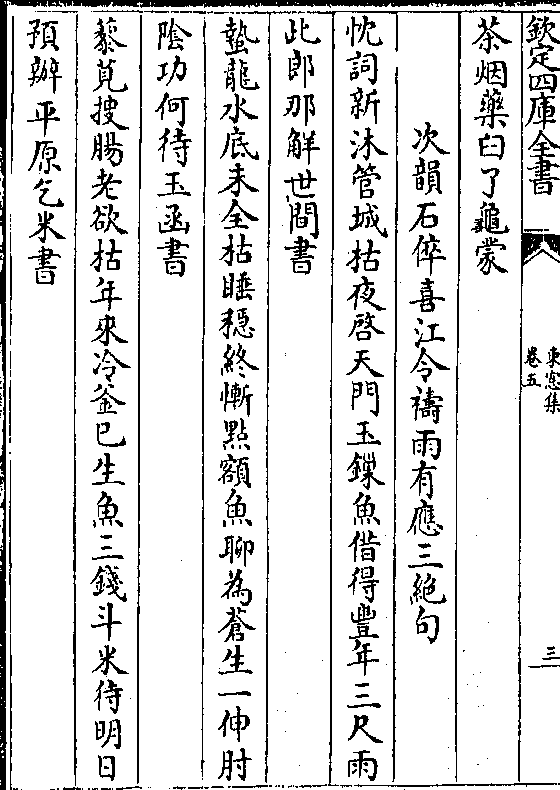 欽定四庫全書
東窓集
卷五
三
茶烟藥臼了龜蒙
次韻石倅喜江令禱雨有應三絶句
忱詞新沐管城枯夜啓天門玉鏁魚借得豐年三尺雨
此郎那解世間書
蟄龍水底未全枯睡穏終慚㸃額魚聊為蒼生一伸肘
隂功何待玉函書
藜莧搜腸老欲枯年來冷釡已生魚三錢斗米待明日
預辦平原乞米書